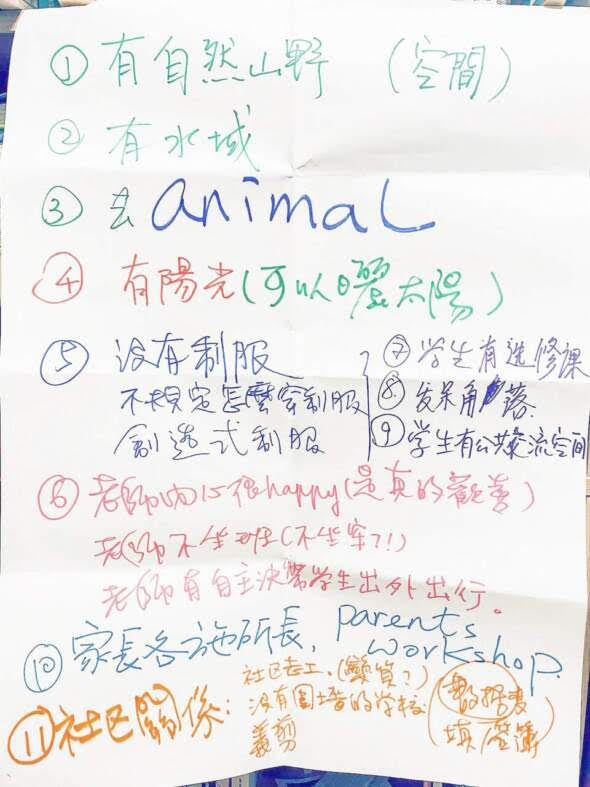 ① 有自然山野 (空間)
② 有水域
③ 去 animal
④ 有陽光(可以曬太陽)
⑤ 沒有制服
不規定怎麼穿制服
創造式制服
⑦ 学生有选修课
⑧ 发呆角落.
⑨ 学生有公共交流空间
⑥ 老師内心很happy(是真的歡喜)
老師不坐班(不坐牢?!)
老師有自主決策学生出外出行。
⑩ 家長各施所長, parents
workshop.
⑪ 社区關係:
社区志工.
没有圍墙的学校
義剪
数据表
填